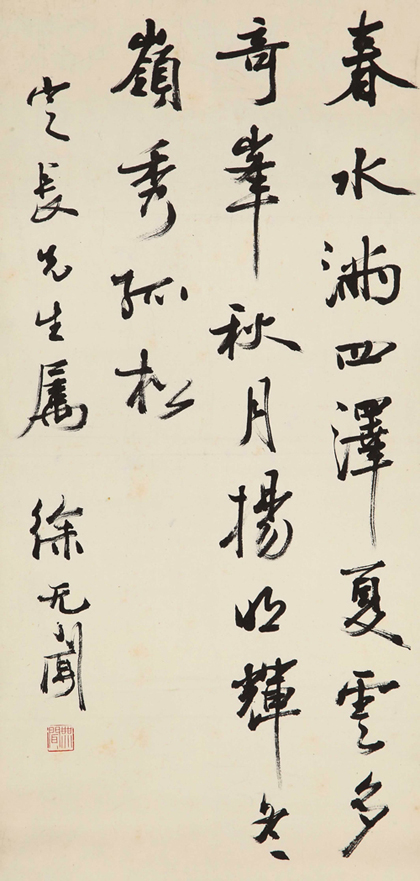 春水滿四澤夏雲多
奇峯秋月揚明輝冬
嶺秀孤松
定長先生属 徐无聞
無聞